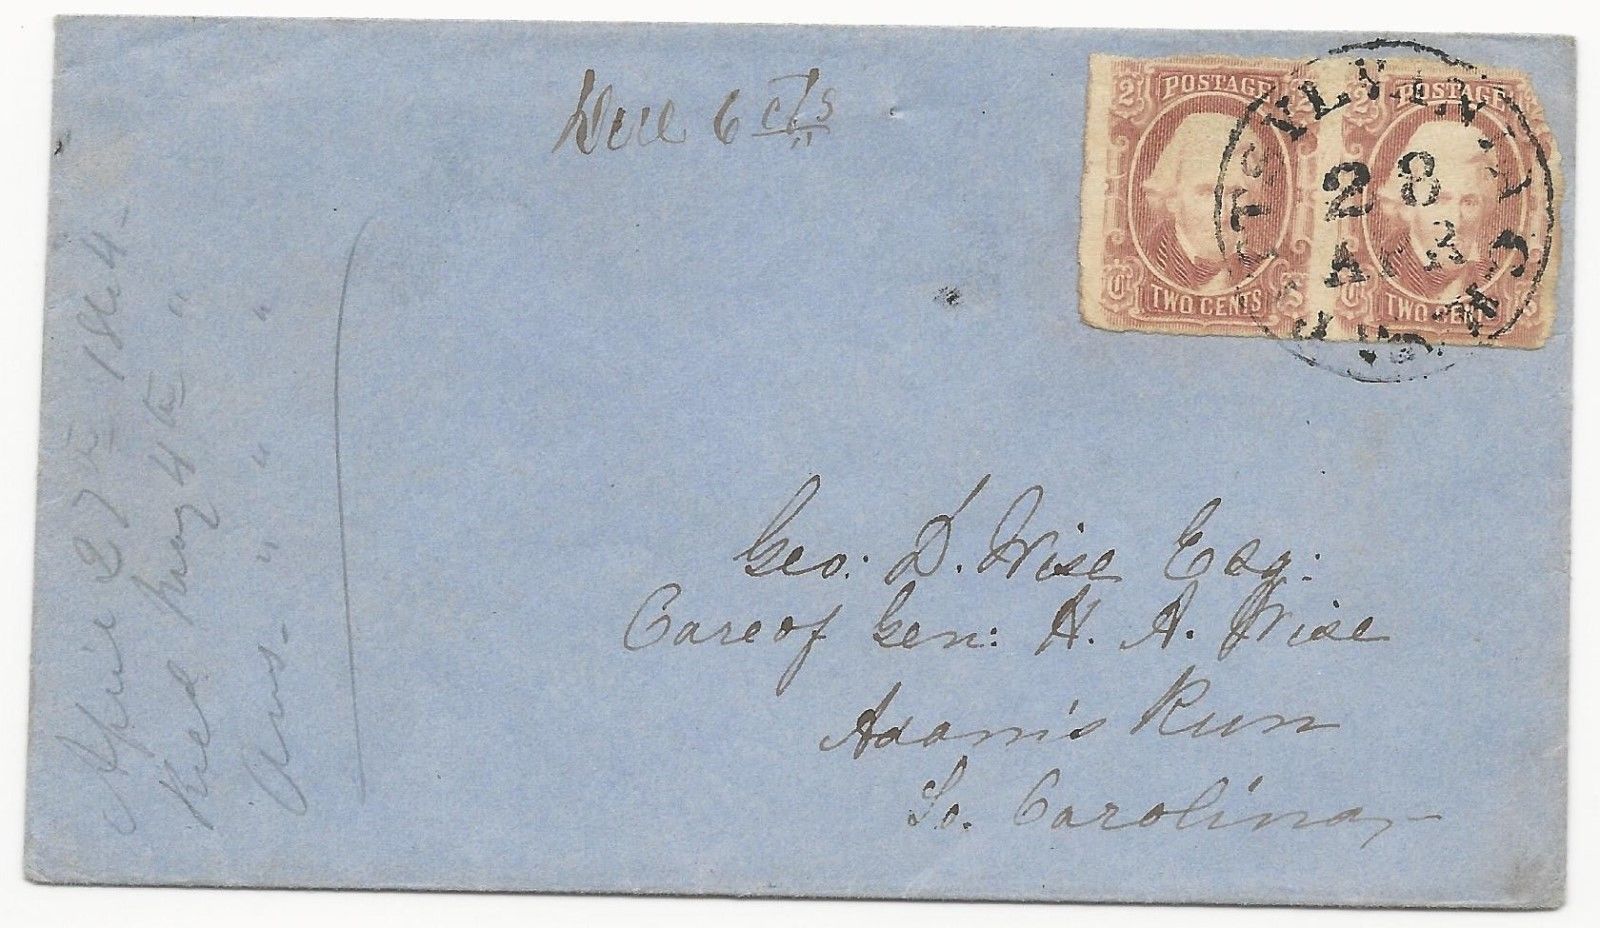 Due 6 cts
2 POSTAGE 2
TWO CENTS
2 POSTAGE
TWO CENTS
PITTSYLVANIA C.H. VA
28
APR
April 27th 1864-
Recd May 4th "
Ans. " " "
Geo: D. Wise Esq:
Care of Gen: H. A. Wise
Adam's Run
So. Carolina,-